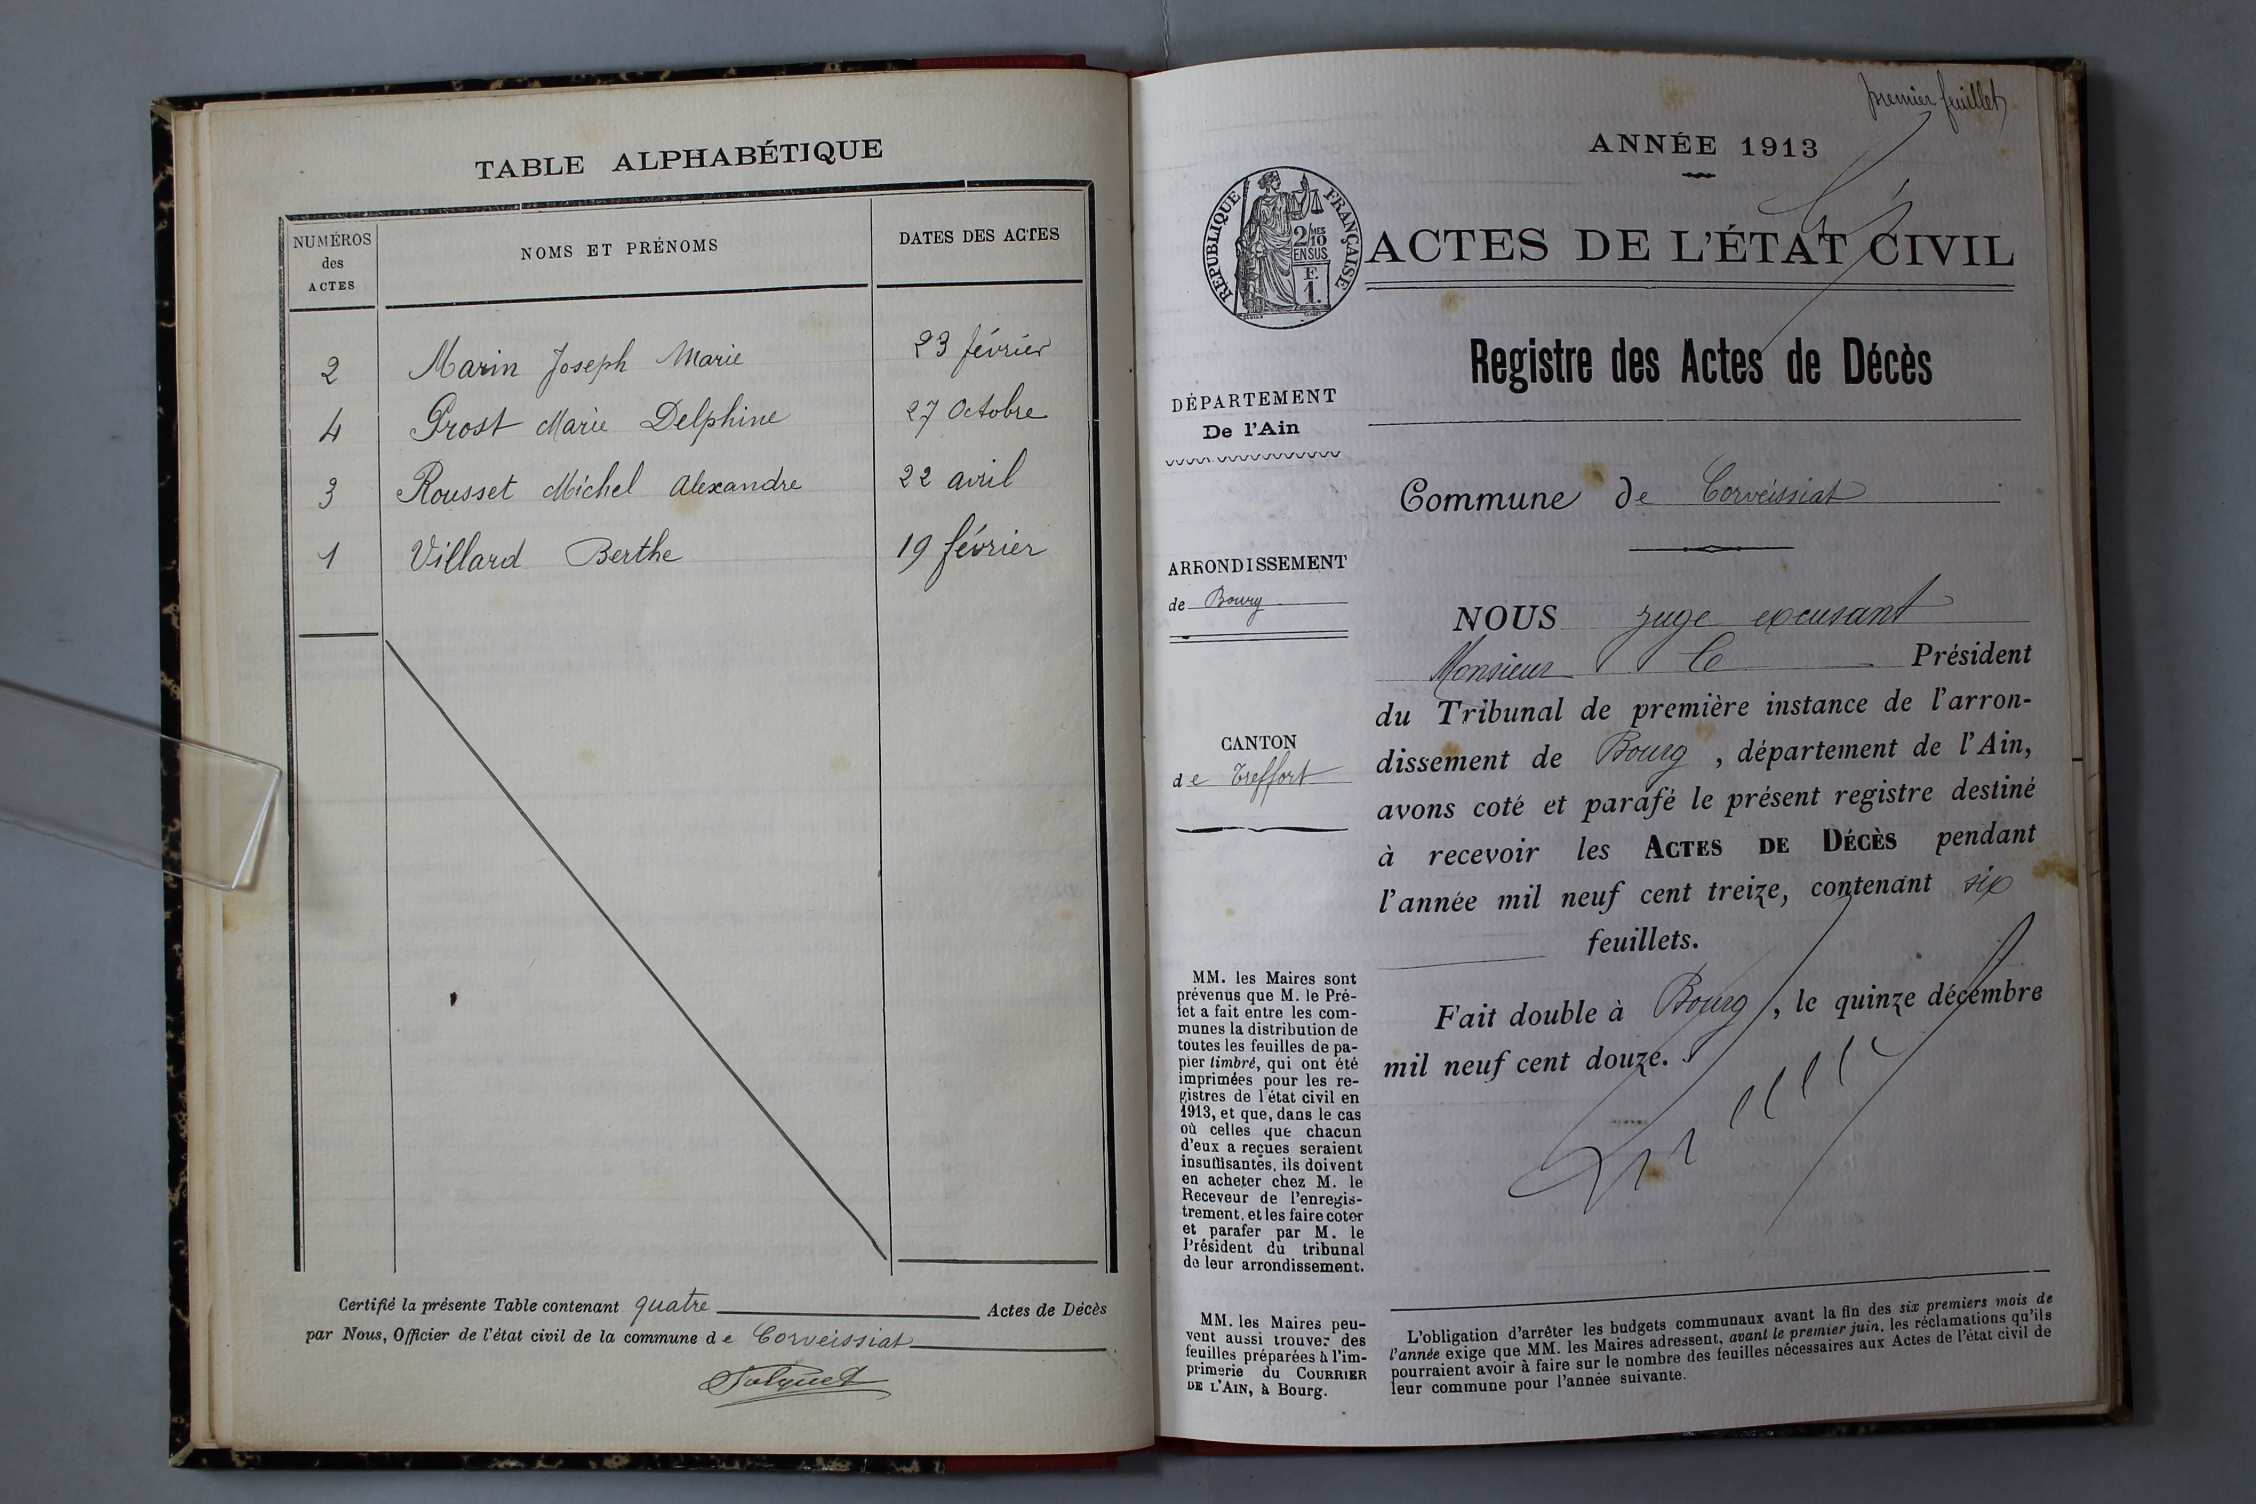 TABLE ALPHABÉTIQUE
NUMÉROS
des
ACTES
NOMS ET PRÉNOMS
DATES DES ACTES
2 Marin Joseph Marie 23 février
4 Prost Marie Delphine 27 Octobre
3 Rousset Michel Alexandre 22 avril
1 Villard Berthe 19 février
Certifié la présente Table contenant quatre Actes de Décès
par Nous, Officier de l'état civil de la commune de Corveissiat
premier feuillet
ANNÉE 1913
RÉPUBLIQUE FRANÇAISE
2/10 MES
EN SUS
F.
1.
ACTES DE L'ÉTAT CIVIL
Registre des Actes de Décès
DÉPARTEMENT
De l'Ain
Commune de Corveissiat
ARRONDISSEMENT
de Bourg
CANTON
de Treffort
MM. les Maires sont
prévenus que M. le Pré-
fet a fait entre les com-
munes la distribution de
toutes les feuilles de pa-
pier timbré, qui ont été
imprimées pour les re-
gistres de l'état civil en
1913, et que, dans le cas
où celles que chacun
d'eux a reçues seraient
insuffisantes, ils doivent
en acheter chez M. le
Receveur de l'enregis-
trement, et les faire coter
et parafer par M. le
Président du tribunal
de leur arrondissement.
MM. les Maires peu-
vent aussi trouver des
feuilles préparées à l'im-
primerie du COURRIER
DE L'AIN, à Bourg.
NOUS juge excusant
Monsieur le Président
du Tribunal de première instance de l'arron-
dissement de Bourg, département de l'Ain,
avons coté et parafé le présent registre destiné
à recevoir les ACTES DE DÉCÈS pendant
l'année mil neuf cent treize, contenant six
feuillets.
Fait double à Bourg, le quinze décembre
mil neuf cent douze.
L'obligation d'arrêter les budgets communaux avant la fin des six premiers mois de
l'année exige que MM. les Maires adressent, avant le premier juin, les réclamations qu'ils
pourraient avoir à faire sur le nombre des feuilles nécessaires aux Actes de l'état civil de
leur commune pour l'année suivante.